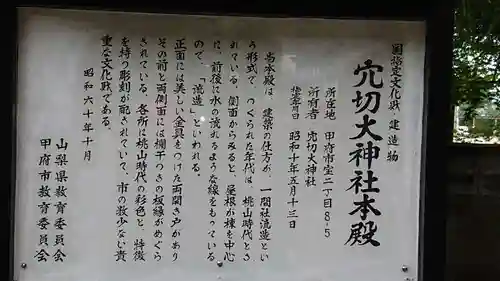 国指定文化財 建造物
穴切大神社本殿
所在地 甲府市宝二丁目8-5
所有者 穴切大神社
指定年月日 昭和十年五月十三日
当本殿は、建築の仕方が、一間社流造とい
う形式で、つくられた年代は、桃山時代とさ
れている。側面からみると、屋根が棟を中心
に、前後に水の流れるような線をもっている
ので、「流造」といわれる。
正面には美しい金具をつけた両開き戸があり
その前と両側面には欄干つきの板縁がめぐら
されている。各所に桃山時代の彩色と、特徴
を持つ彫刻が配されていて、市の数少ない貴
重な文化財である。
昭和六十年十月
山梨県教育委員会
甲府市教育委員会